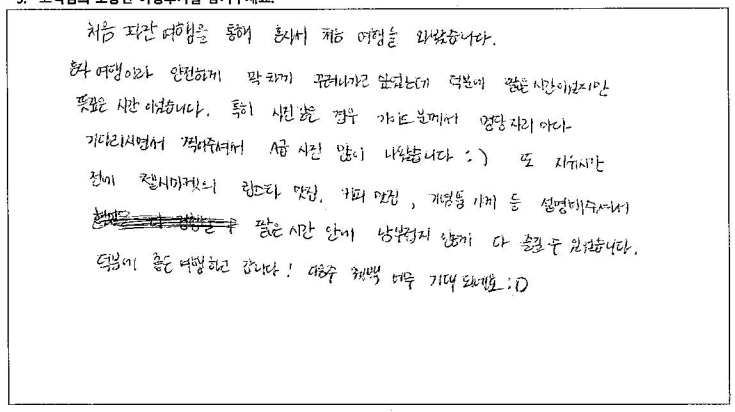 3. 고객님의 소중한 여행후기를 남겨주세요.
처음 자간 여행을 통해 혼자서 처음 여행을 와봤습니다.
혼자 여행이라 안전하게 알차게 싶었는데 덕분에 짧은 시간이었지만
뜻깊은 시간이었습니다. 특히 사진 같은 경우 가이드분께서 명당자리 마다
기다리시면서 찍어주셔서 A급 사진 많이 나왔습니다 :) 또 자유시간
전에 첼시마켓의 랍스타 맛집, 커피 맛집, 기념품 가게 등 설명해주셔서
짧은 시간 안에 남부럽지 않게 다 즐길 수 있었습니다.
덕분에 좋은 여행하고 갑니다! 다음주 기대되네요 :D